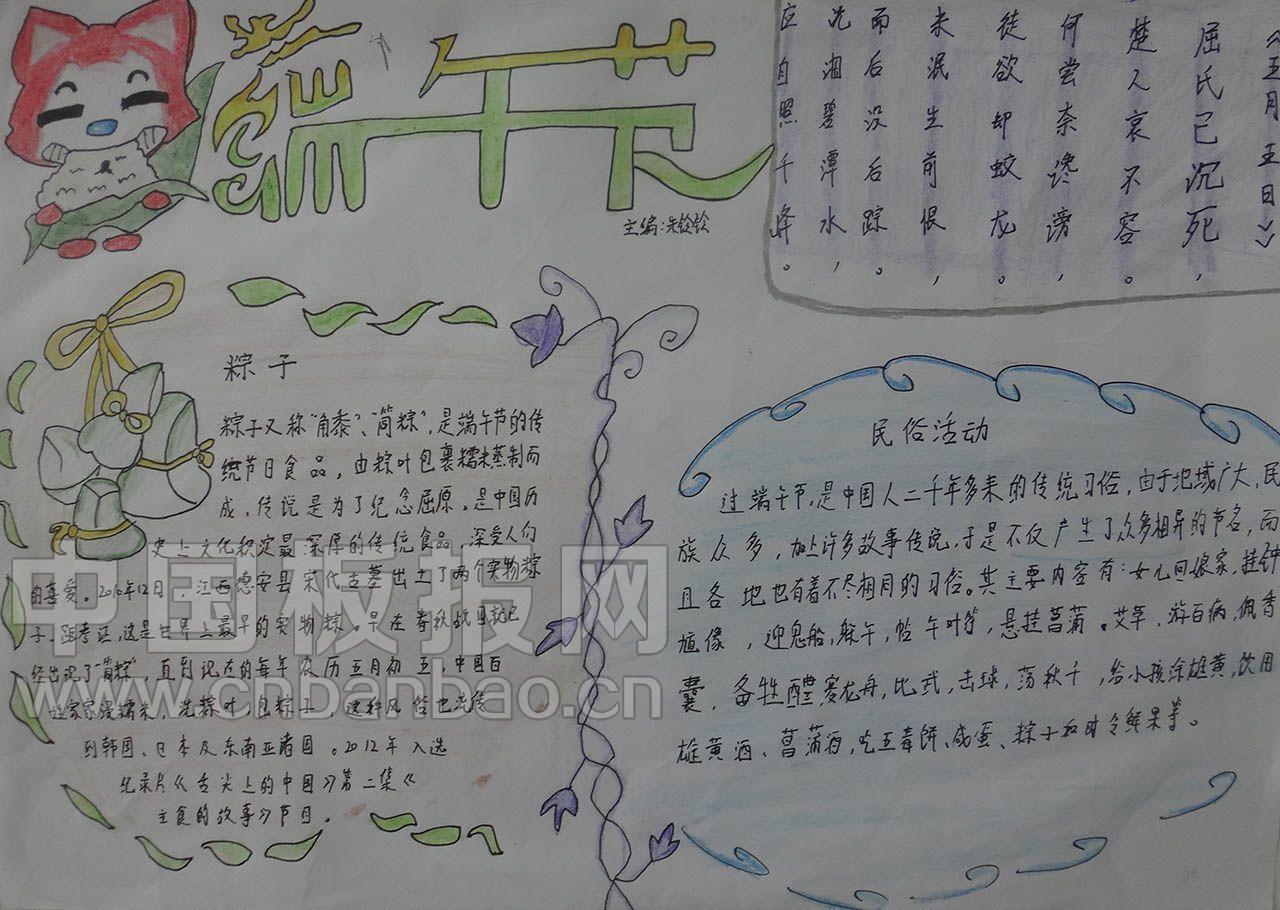 端午节
主编:朱铃铃
《五月五日》
屈氏已沉死,
楚人哀不容。
何尝奈谗谤,
徒欲却蛟龙。
未泯生前恨,
而后没后踪。
沉湘碧潭水,
应自照千峰。
粽子
粽子又称“角黍”、“筒粽”,是端午节的传
统节日食品,由粽叶包裹糯米蒸制而
成,传说是为了纪念屈原。是中国历
史上文化积淀最深厚的传统食品,深受人们
的喜爱。2010年12月,江西德安县宋代古墓出土了两个实物粽
子,经考证,这是世界上最早的实物粽。早在春秋战国就已
经出现了“筒粽”,直到现在的每年农历五月初五,中国百
姓家家浸糯米,洗粽叶,包粽子,这种风俗也流传
到韩国、日本及东南亚诸国。2012年入选
纪录片《舌尖上的中国》第二集《
主食的故事》节目。
民俗活动
过端午节,是中国人二千年多来的传统习俗,由于地域广大,民
族众多,加上许多故事传说,于是不仅产生了众多相异的节名,而
且各地也有着不尽相同的习俗。其主要内容有:女儿回娘家,挂钟
馗像,迎鬼船,躲午,帖午叶符,悬挂菖蒲。艾草,游百病,佩香
囊,备牲醴赛龙舟,比武,击球,荡秋千,给小孩涂雄黄,饮用
雄黄酒、菖蒲酒,吃五毒饼、咸蛋、粽子和时令鲜果等。
中国板报网
www.cnbanbao.cn